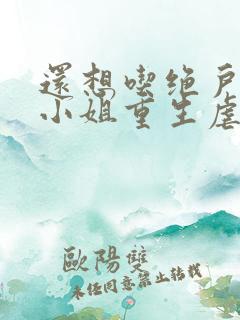 還想喫绝戶
小姐重生虐
歐陽雙
未经同意禁止转载